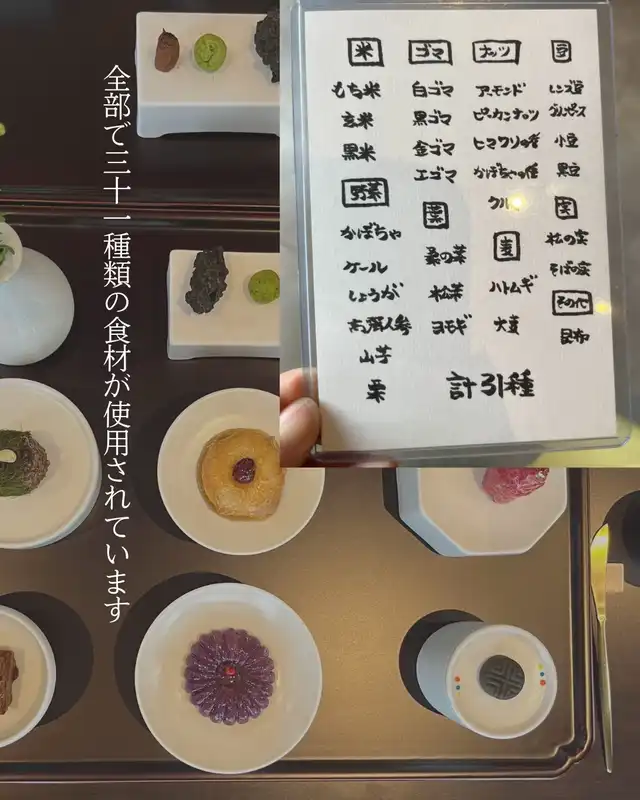 全部で三十一種類の食材が使用されています
米
もち米
玄米
黒米
野菜
かぼちゃ
ケール
しょうが
高麗人参
山芋
栗
ゴマ
白ゴマ
黒ゴマ
金ゴマ
エゴマ
葉
桑の葉
松葉
ヨモギ
ナッツ
アーモンド
ピーカンナッツ
ヒマワリの種
かぼちゃの種
麦
ハトムギ
大麦
豆
レンズ豆
グリンピース
小豆
黒豆
実
松の実
そばの実
その他
昆布
計31種